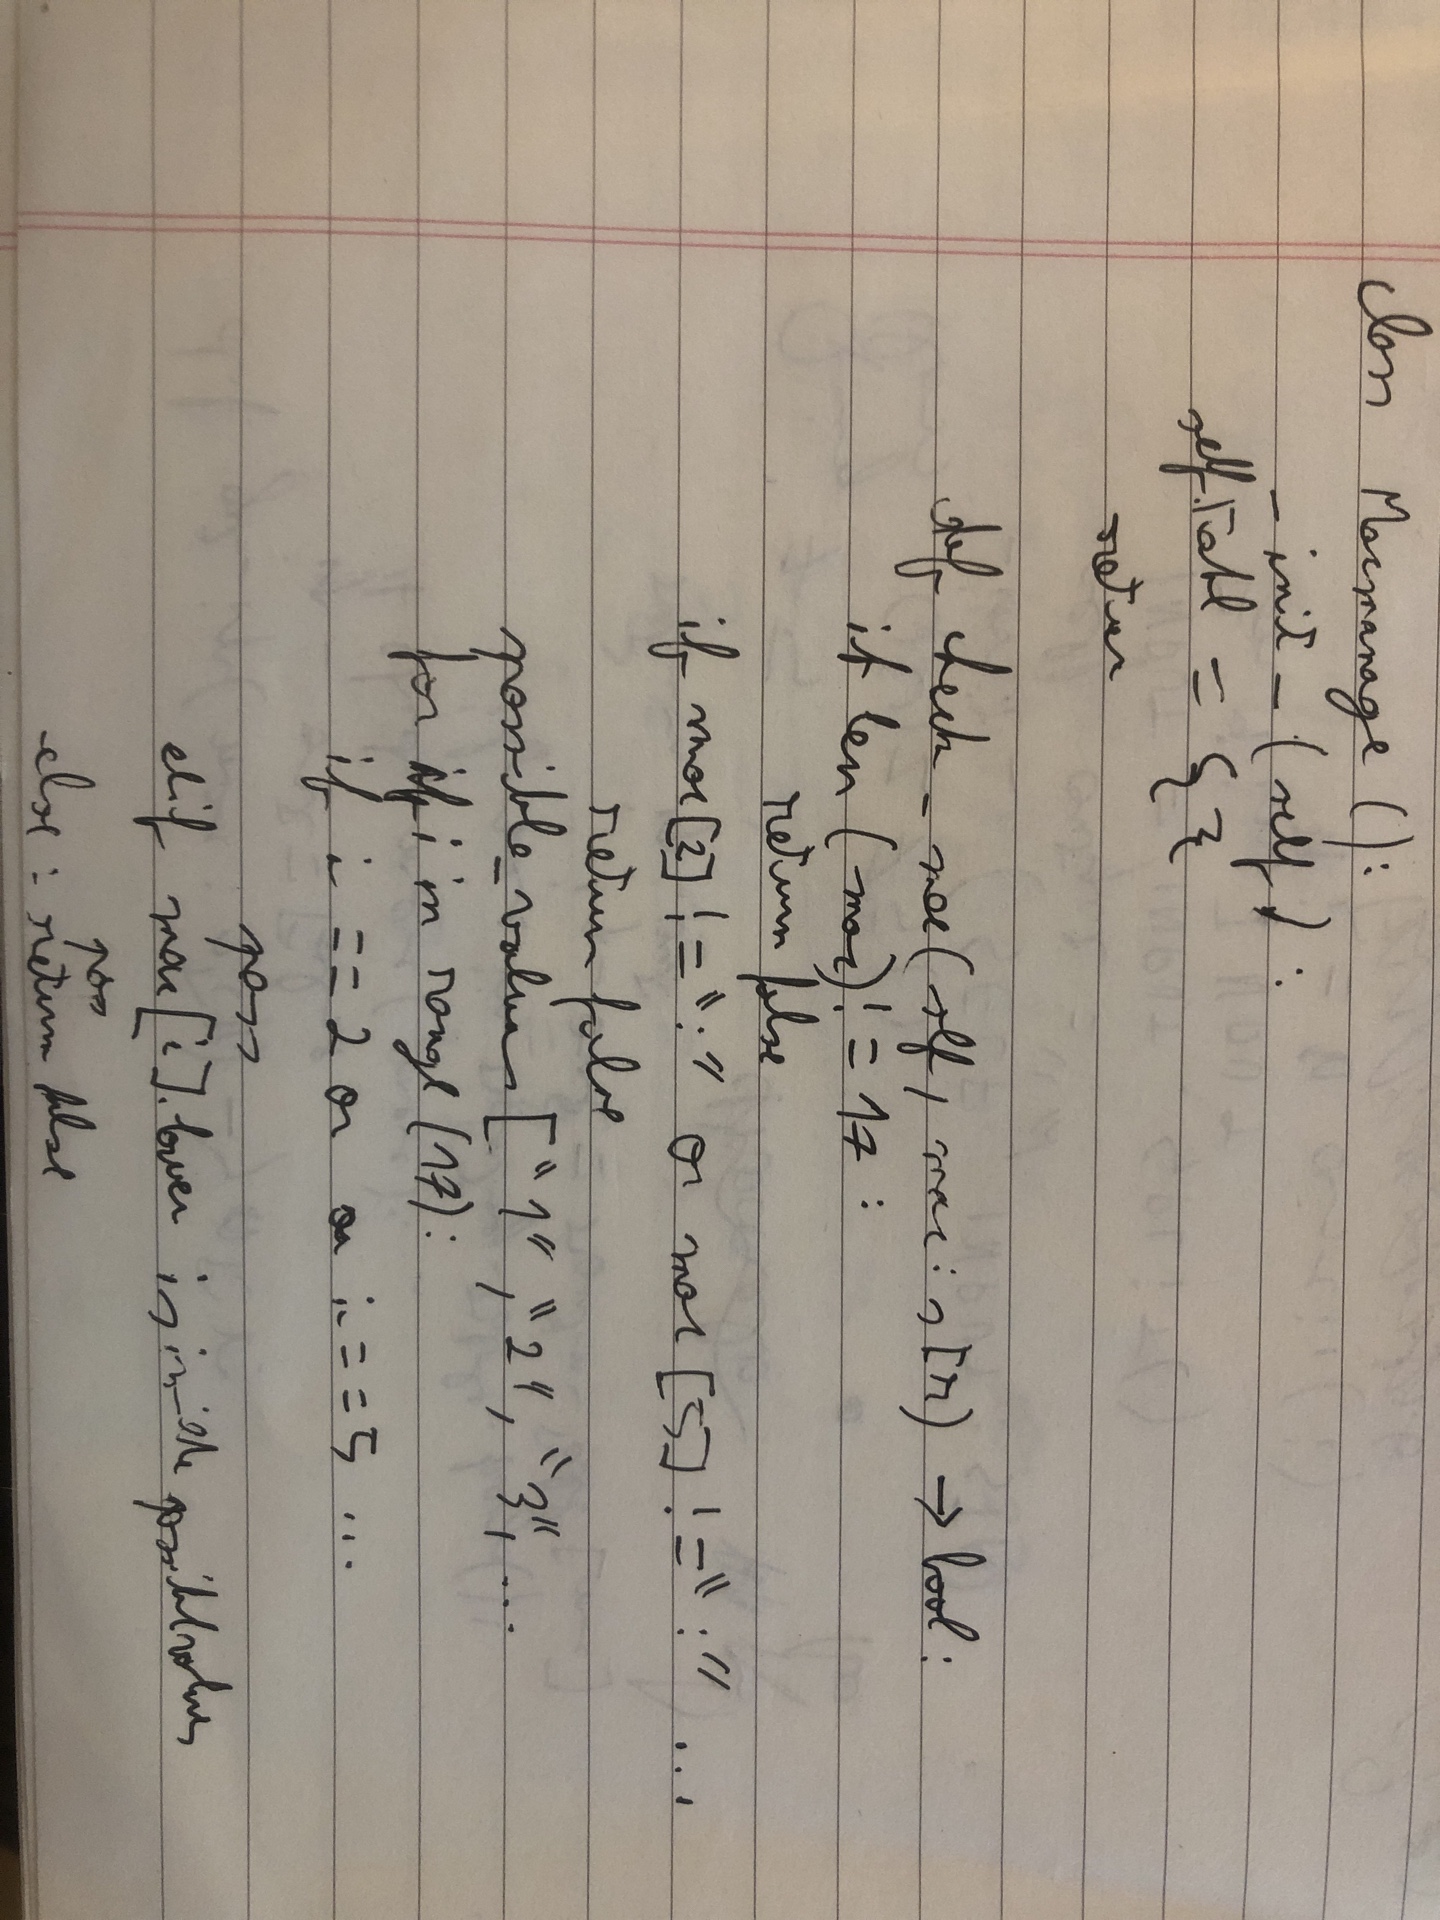 class Macmanage ():
_init_(self):
self.Table = {}
return
def check_mac(self, mac: str) → bool:
if len(mac) != 17:
return false
if mac[2] != ":" or mac[5] != ":" ...
return false
possible_values ["1", "2", "3", ...
for i in range (17):
if i == 2 or i == 5 ...
pass
elif mac[i].lower in possiblevalues
pass
else: return false